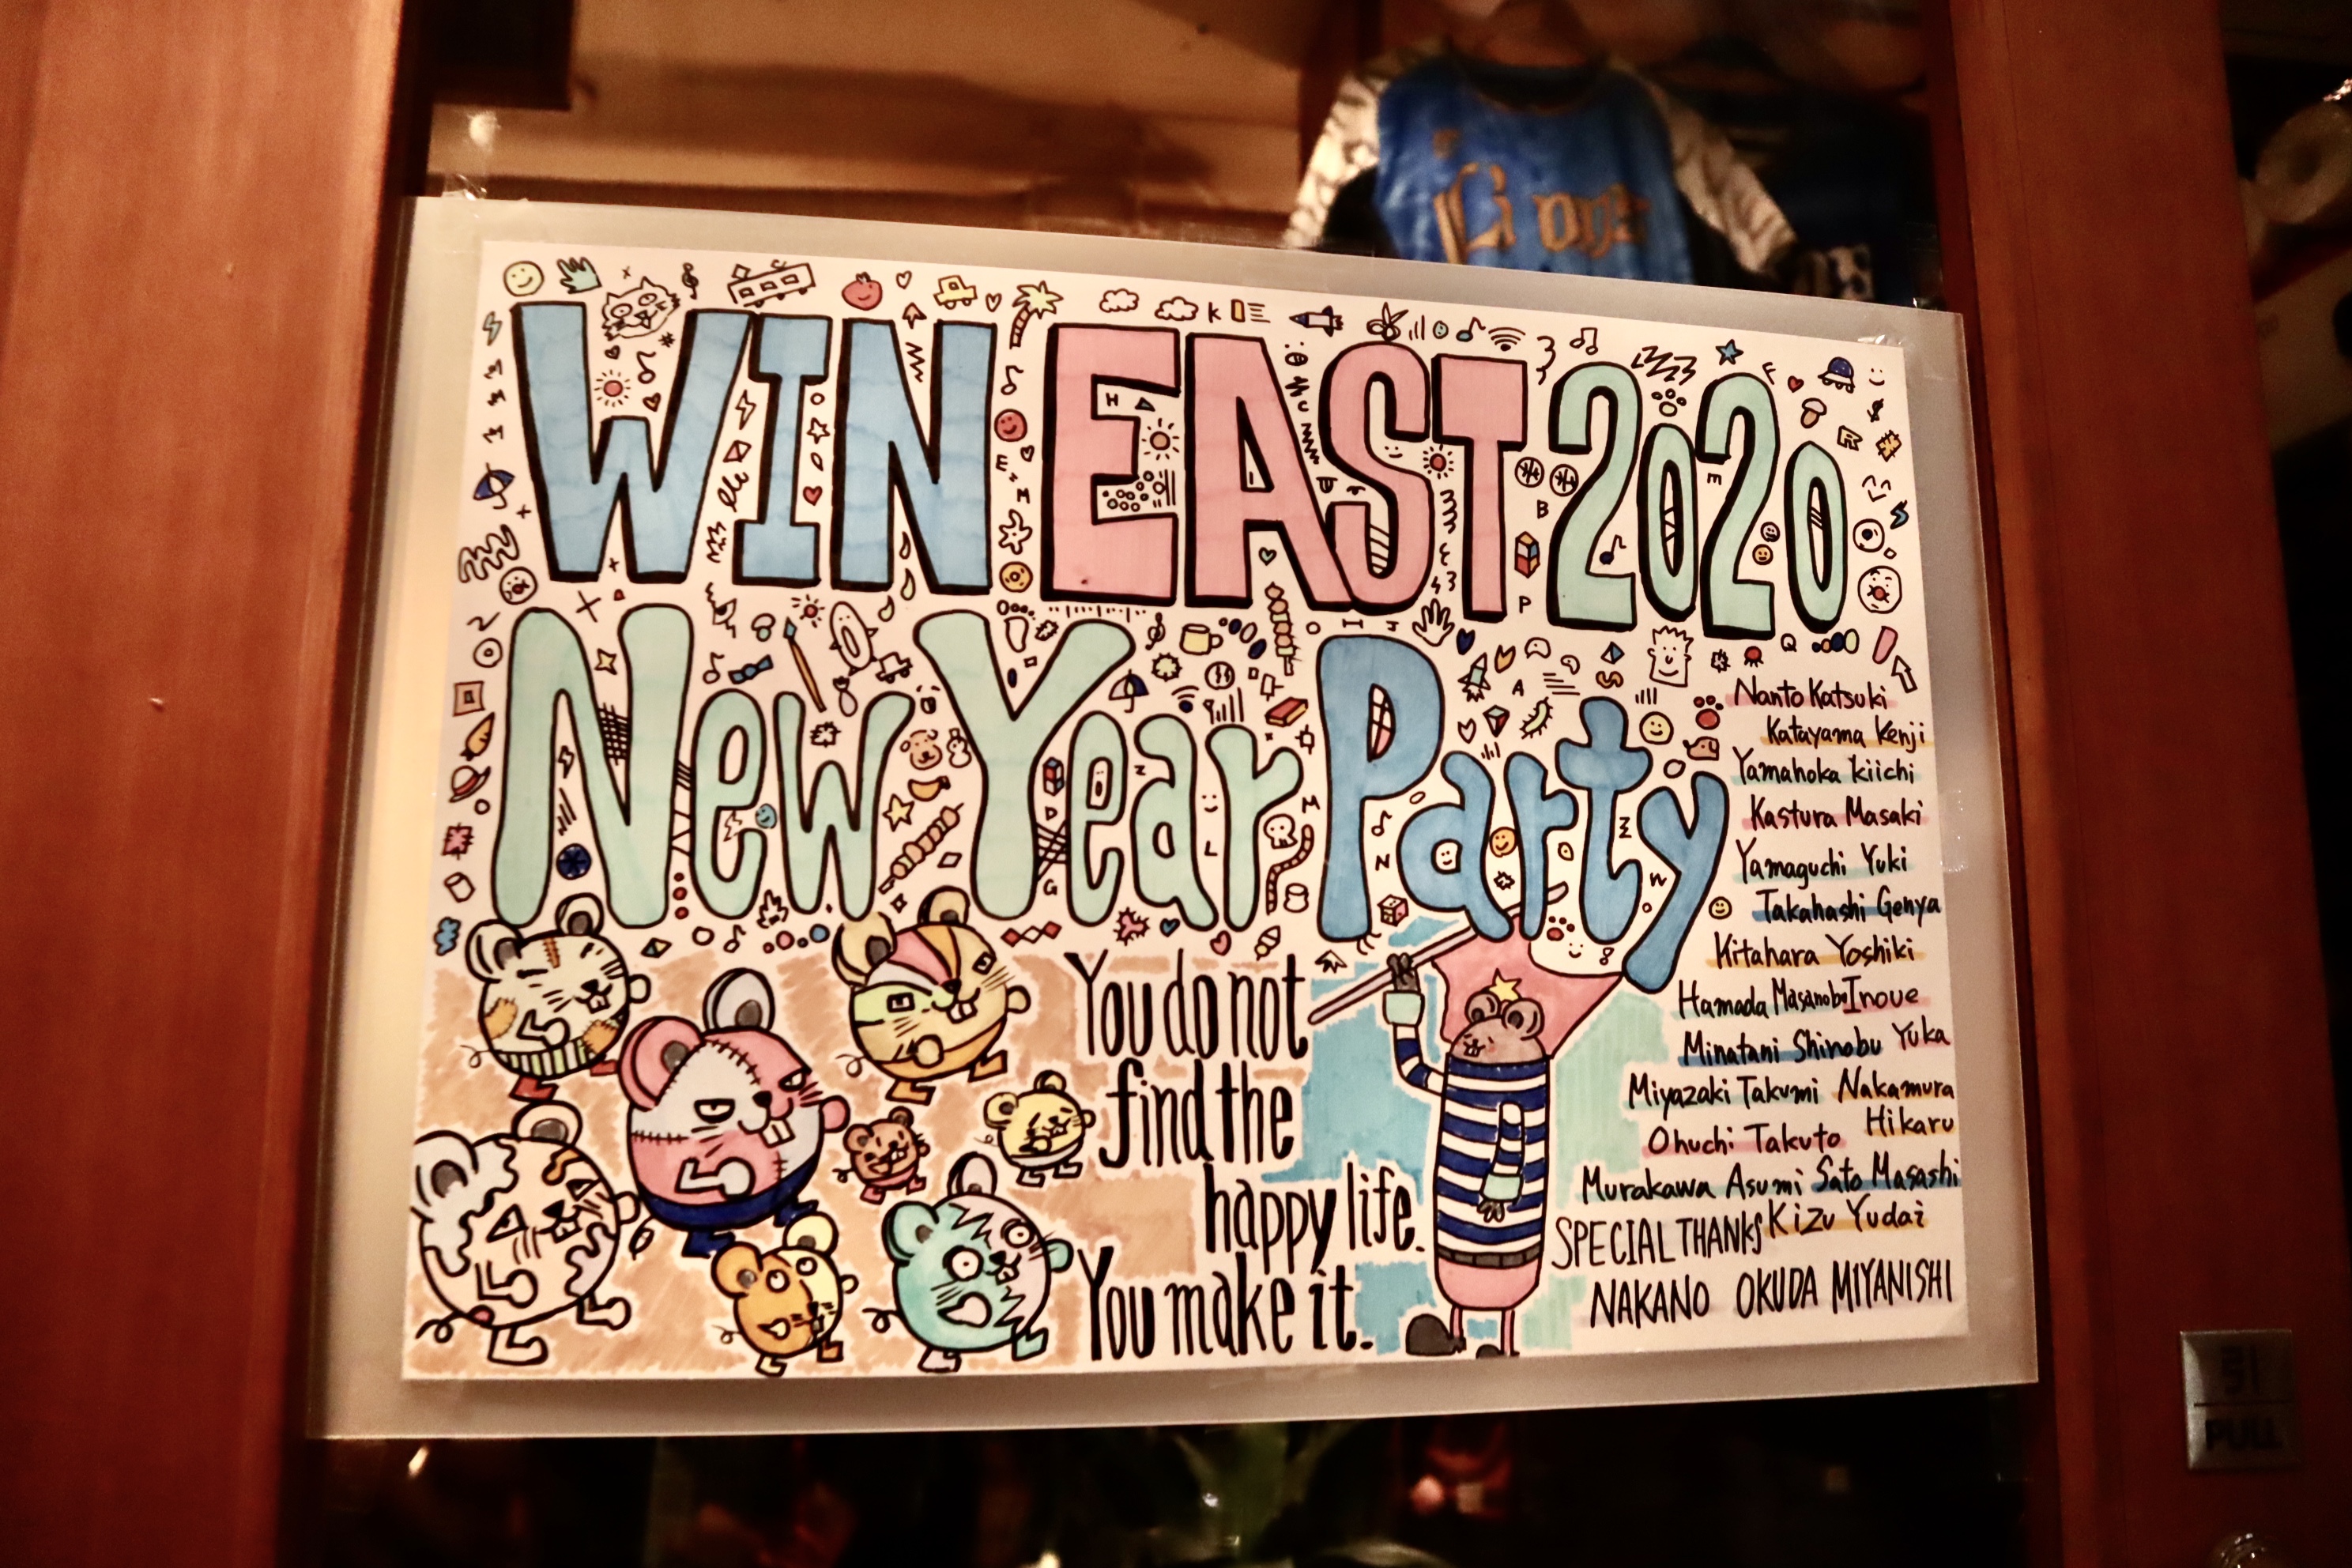 WIN EAST 2020
New Year Party
You do not
find the
happy life.
You make it.
Nanto Katsuki
Katayama Kenji
Yamahoka Kiichi
Kastura Masaki
Yamaguchi Yuki
Takahashi Genya
Kitahara Yoshiki
Hamada Masanobu Inoue
Minatani Shinobu Yuka
Miyazaki Takumi Nakamura
Ohuchi Takuto Hikaru
Murakawa Asumi Sato Masashi
SPECIAL THANKS Kizu Yudai
NAKANO OKUDA MIYANISHI
引
PULL